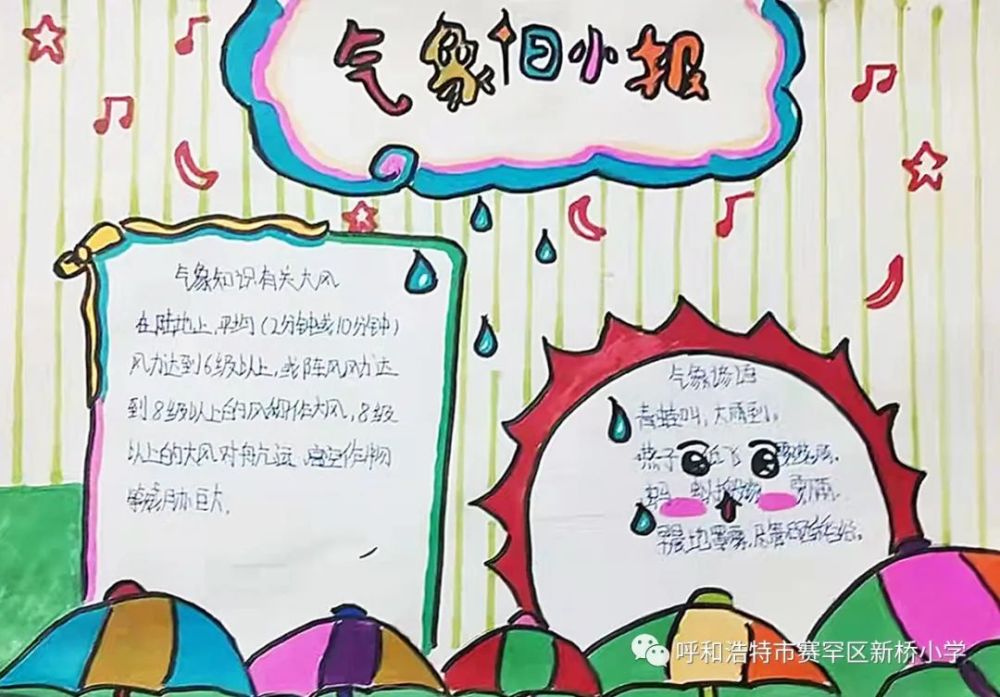 气象日小报
气象知识有关大风
在陆地上,平均(2分钟或10分钟)
风力达到6级以上,或阵风风力达
到8级以上的风称作大风,8级
以上的大风对航运、高空作物
巨大。
气象谚语
青蛙叫,大雨到。
燕子 飞
呼和浩特市赛罕区新桥小学